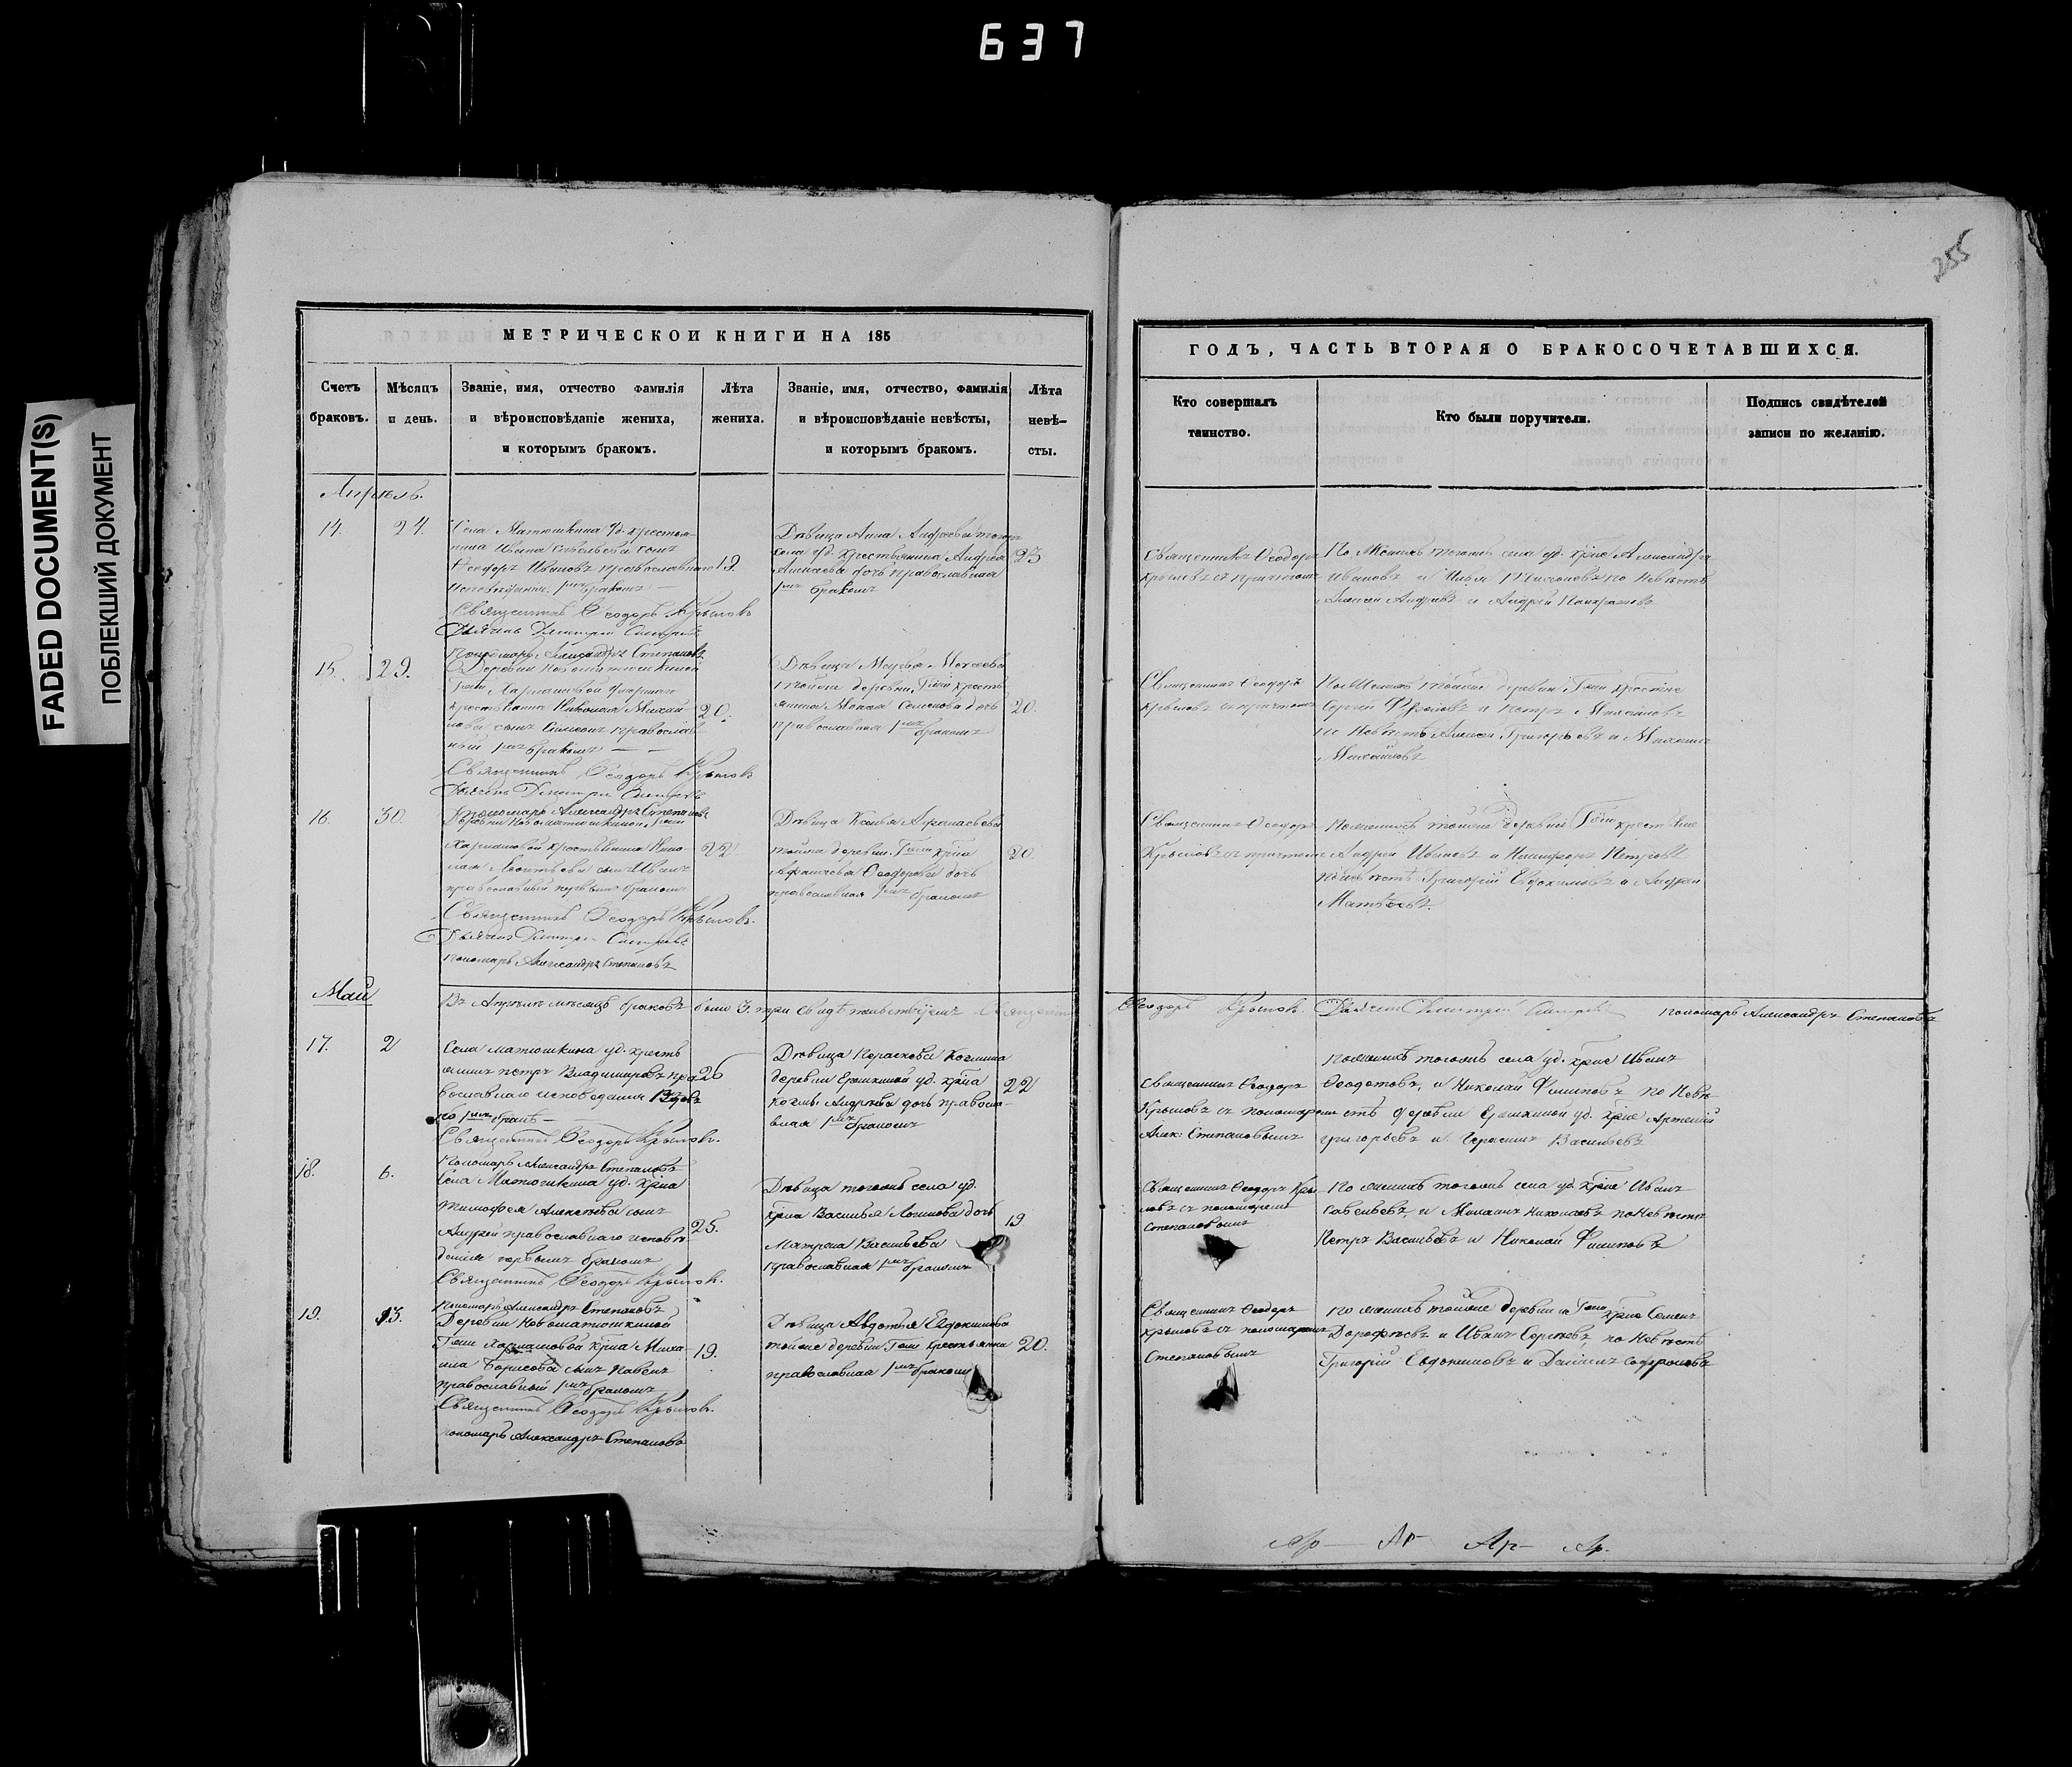 637
FADED DOCUMENT(S)
ПОБЛЕКШИЙ ДОКУМЕНТ
255
МЕТРИЧЕСКОЙ КНИГИ НА 185
Счетъ браковъ.
Мѣсяцъ и день.
Званіе, имя, отчество фамилія
и вѣроисповѣданіе жениха,
и которымъ бракомъ.
Лѣта жениха.
Званіе, имя, отчество, фамилія
и вѣроисповѣданіе невѣсты,
и которымъ бракомъ.
Лѣта невѣ-
сты.
ГОДЪ, ЧАСТЬ ВТОРАЯ О БРАКОСОЧЕТАВШИХСЯ.
Кто совершалъ
таинство.
Кто были поручители.
Подпись свидѣтелей
записи по желанію.
Апрель.
14.
24.
Села Матюшкина уд. крестья
нина Ивана Савельева сынъ
Ѳеодоръ Ивановъ православнаго
исповѣданія 1мъ бракомъ
19.
Священникъ Ѳеодоръ Крыловъ
Дьячекъ Дмитрій
Пономарь Александръ Степановъ
Дѣвица Анна Андреева тогожъ
села уд. крестьянина Андрея
Алексеева дочь православная
1мъ бракомъ
23
Священникъ Ѳеодоръ
Крыловъ съ причтомъ
По Женихѣ тогожъ села уд. кр̃не Александръ
Ивановъ и Илья по Невѣсте
Алексей Андреевъ и Андрей
15.
29.
Деревни Новоматюшкиной
Тожъ Хармаловой
крестьянина Николая Михай
лова сынъ Симеонъ православ
ный 1мъ бракомъ
20.
Священникъ Ѳеодоръ Крыловъ
Дьячекъ Дмитрій
Пономарь Александръ Степановъ
Дѣвица Марья Моисеева
тойже деревни, Тожъ кресть
янина Моисея Семенова дочь
православная 1мъ бракомъ
20.
Священникъ Ѳеодоръ
Крыловъ съ причтомъ
По Женихѣ тойже деревни Тожъ крестьяне
Сергей и Петръ Михайловъ
по Невѣстѣ Алексей Григорьевъ и Михаилъ
Михайловъ
16.
30.
Деревни Новоматюшкиной, Тожъ
Хармаловой крестьянина Нико
лая Леонтьева сынъ Иванъ
православный первымъ бракомъ
22
Священникъ Ѳеодоръ Крыловъ.
Дьячекъ Дмитрій
пономарь Александръ Степановъ
Дѣвица Ксенья Афанасьева
тойже деревни. Тожъ кр̃на
Афанасея Ѳеодорова дочь
православная 1мъ бракомъ
20.
Священникъ Ѳеодоръ
Крыловъ съ причтомъ
По женихѣ тойже деревни Тожъ крестьяне
Андрей Ивановъ и Никифоръ Петровъ
по невѣстѣ Григорій Евдокимовъ и Андрей
Матвѣевъ.
Май
Въ Апрѣлѣ мѣсяцѣ браковъ было 3. три свидѣтельствуемъ Священникъ
Ѳеодоръ Крыловъ. Дьячекъ Дмитрій пономарь Александръ Степановъ
17.
2
Села матюшкина уд. кресть
янинъ петръ Владимировъ пра
вославнаго исповеданія Вдовъ
по 1мъ бракѣ
26
Священникъ Ѳеодоръ Крыловъ.
Пономарь Александръ Степановъ
Дѣвица Параскева Козмина
деревни Ерыклиной уд. кр̃на
козмы Андреева дочь правосла
вная 1мъ бракомъ
22
Священникъ Ѳеодоръ
Крыловъ съ пономаремъ
Алек: Степановымъ
По женихѣ тогожъ села уд. кр̃не Иванъ
Ѳеодотовъ, и Николай Филиповъ по Невѣ
стѣ деревни Ерыклиной уд. кр̃не Артемій
григорьевъ и Герасимъ Васильевъ
18.
6.
Села Матюшкина уд. кр̃на
тимофея Алексеева сынъ
Андрей православнаго исповѣ
данія первымъ бракомъ
25.
Священникъ Ѳеодоръ Крыловъ.
Пономарь Александръ Степановъ
Дѣвица тогожъ села уд.
кр̃на Василья Логинова дочь
Матрена Васильева
православная 1мъ бракомъ
19
Священникъ Ѳеодоръ Кры
ловъ съ пономаремъ
Степановымъ
По женихѣ тогожъ села уд. кр̃не Иванъ
савельевъ, и Михаилъ Николаевъ по Невѣсте
Петръ Васильевъ и Николай Филиповъ
19.
13.
Деревни Новоматюшкиной
Тожъ Хармаловой кр̃на Миха
ила Борисова сынъ Павелъ
православный 1мъ бракомъ
19.
Священникъ Ѳеодоръ Крыловъ.
пономарь Александръ Степановъ
Дѣвица Авдотья Евдокимова
тойже деревни Тожъ крестьянка
православная 1мъ бракомъ
20.
Священникъ Ѳеодоръ
Крыловъ съ пономаремъ
Степановымъ
по женихѣ тойже деревни Тожъ кр̃не Семенъ
Дорофѣевъ и Иванъ Сергеевъ, по Невѣстѣ
Григорій Евдокимовъ и Даніилъ Софроновъ
Ар— Ар— Ар— Ар.